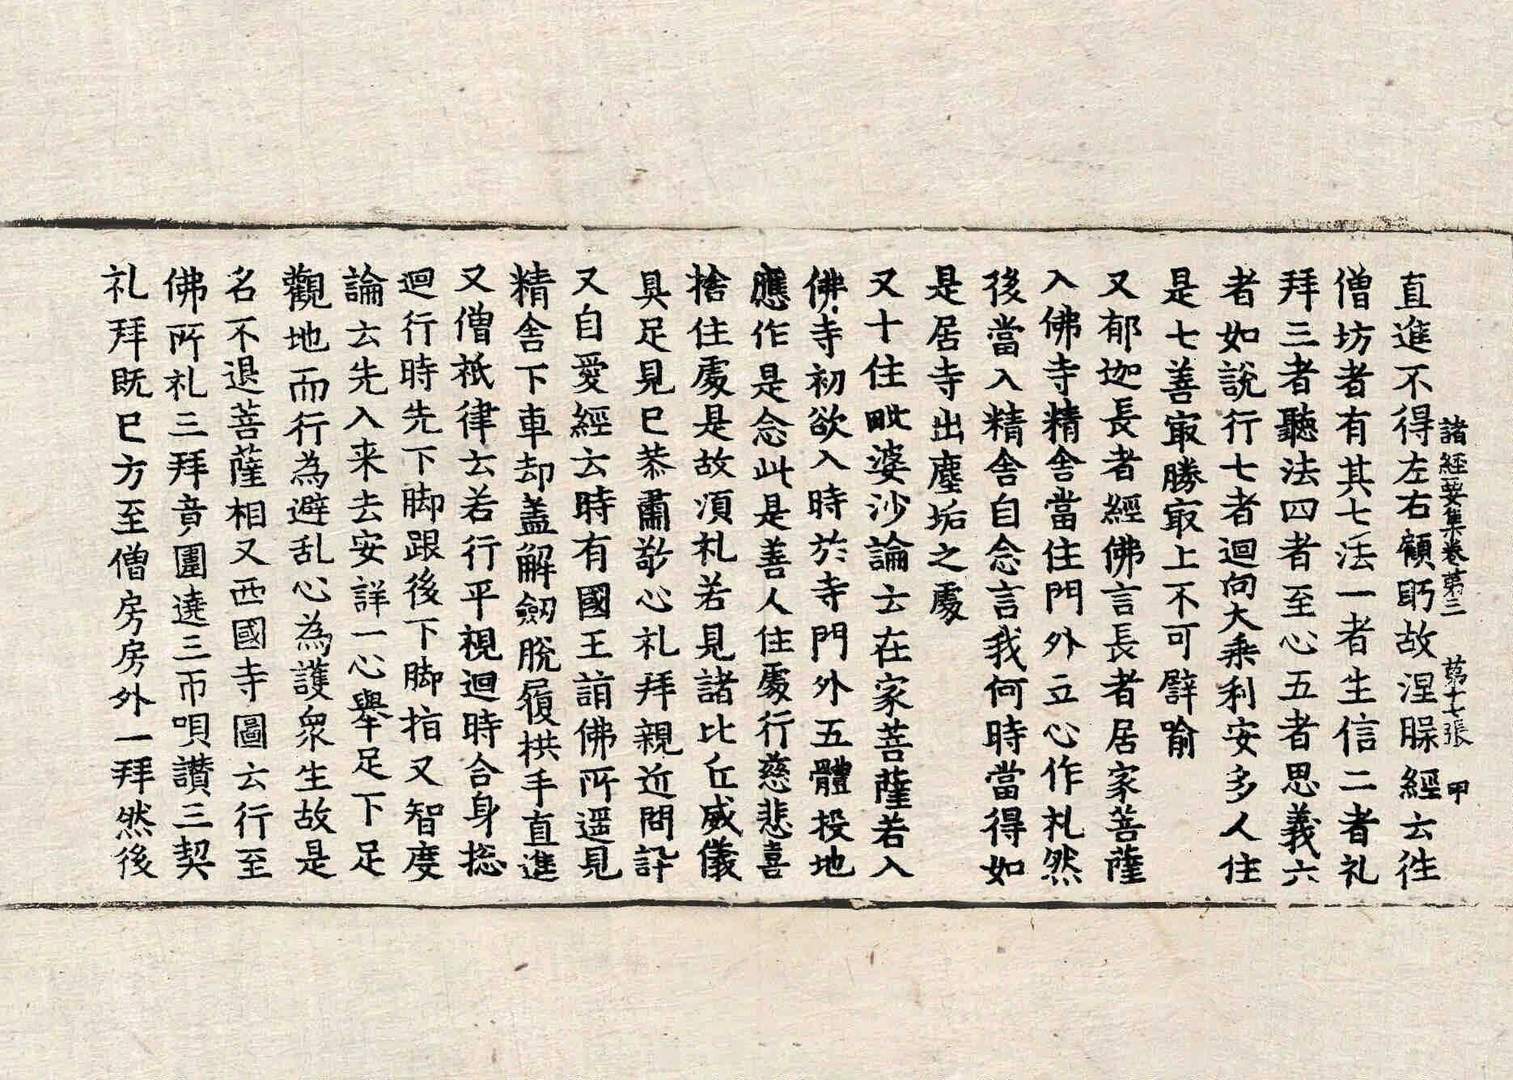 諸經要集卷第三　第十七張　甲
直進不得左右顧眄故涅槃經云往
僧坊者有其七法一者生信二者礼
拜三者聽法四者至心五者思義六
者如說行七者迴向大乘利安多人住
是七善㝡勝㝡上不可譬喻
又郁迦長者經佛言長者居家菩薩
入佛寺精舍當住門外五心作礼然
後當入精舍自念言我何時當得如
是居寺出塵垢之處
又十住毗婆沙論云在家菩薩若入
佛寺初欲入時於寺門外五體投地
應作是念此是善人住處行慈悲喜
捨住處是故須礼若見諸比丘威儀
具足見已恭肅敬心礼拜親近問訊
又自愛經云時有國王詣佛所遥見
精舍下車却盖解劒脫履拱手直進
又僧祇律云若行平視迴時合身捴
迴行時先下脚跟後下脚指又智度
論云先入来去安詳一心舉足下足
觀地而行為避乱心為護衆生故是
名不退菩薩相又西國寺圖云行至
佛所礼三拜竟圍遶三帀唄讚三契
礼拜既已方至僧房房外一拜然後